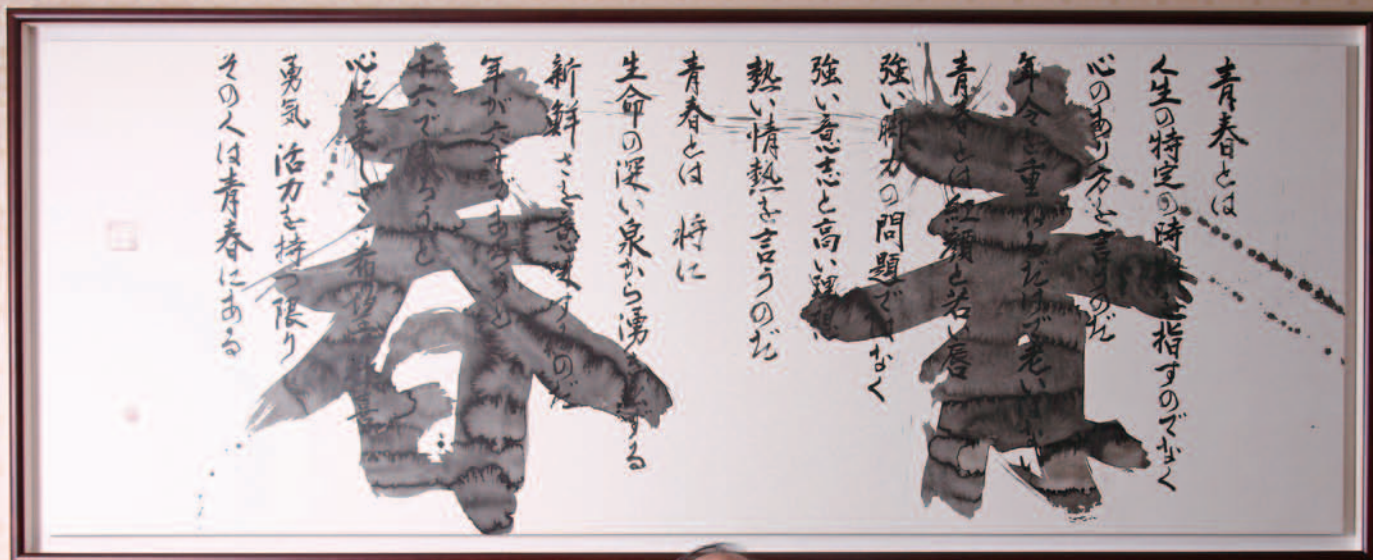 青春
青春とは
人生の特定の時期を指すのでなく
心のあり方を言うのだ
年令を重ねるだけで老いはない
青春とは紅顔と若い唇
強い脚力の問題ではなく
強い意志と高い理想
熱い情熱を言うのだ
青春とは 将に
生命の深い泉から湧き出ずる
新鮮さを意味するのだ
年が六十であろうと
十六であろうと
心に美しさ 希望
勇気 活力を持つ限り
その人は青春にある